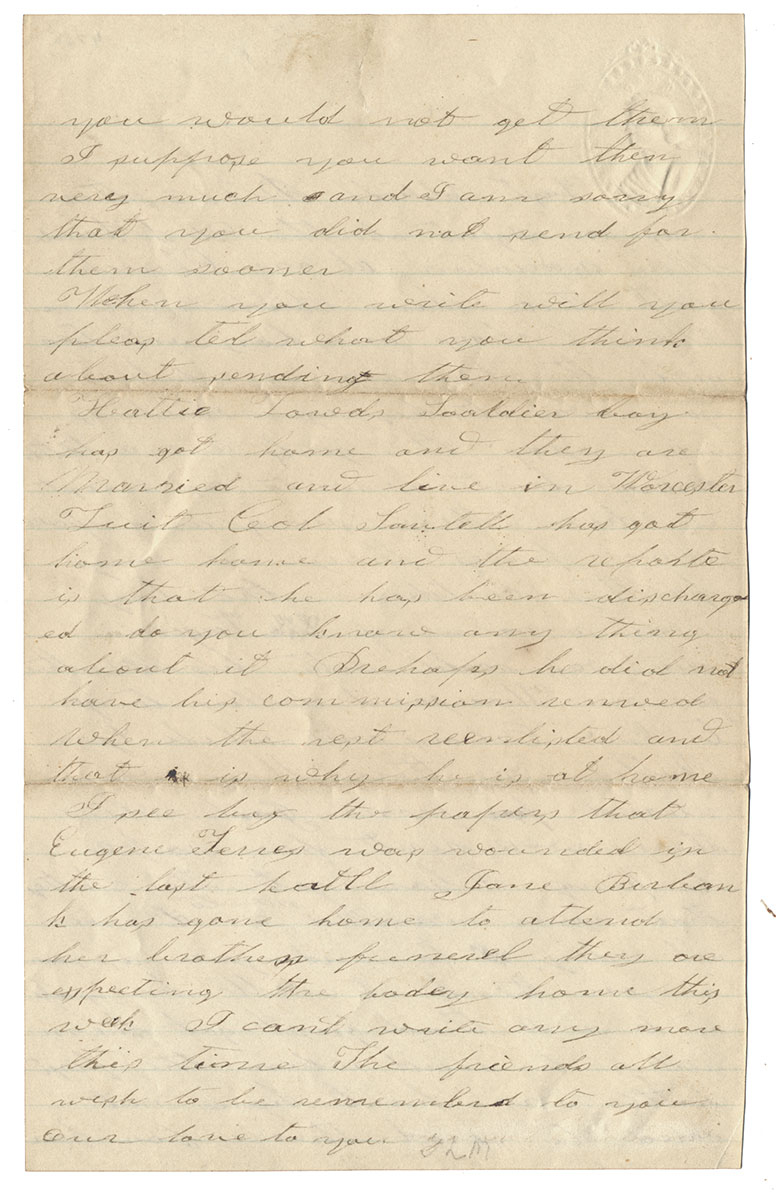 you would not get them
I suppose you want then
very much and I am sorry
that you did not send for
them sooner
When you write will you
pleas tel what you think
about sending them
Hattie Towds Sooldier boy
has got home and they are
Married and live in Worcester
Luit Col Sawtell has got
home home and the reporte
is that he has been discharg
ed do you know any thing
about it Prehaps he did not
have his commission renwed
when the rest reenlisted and
that is why he is at home
I see by the papers that
Eugene was wounded in
the last battl Jane Burban
k has gone home to attend
her brothers funerel they are
expecting the bodey home this
week I cant write any more
this time The friends all
wish to be rememberd to you
Our love to you